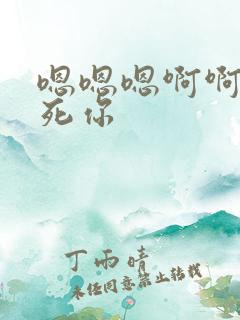 嗯嗯嗯啊啊
死你
丁雨晴
未经同意禁止转载